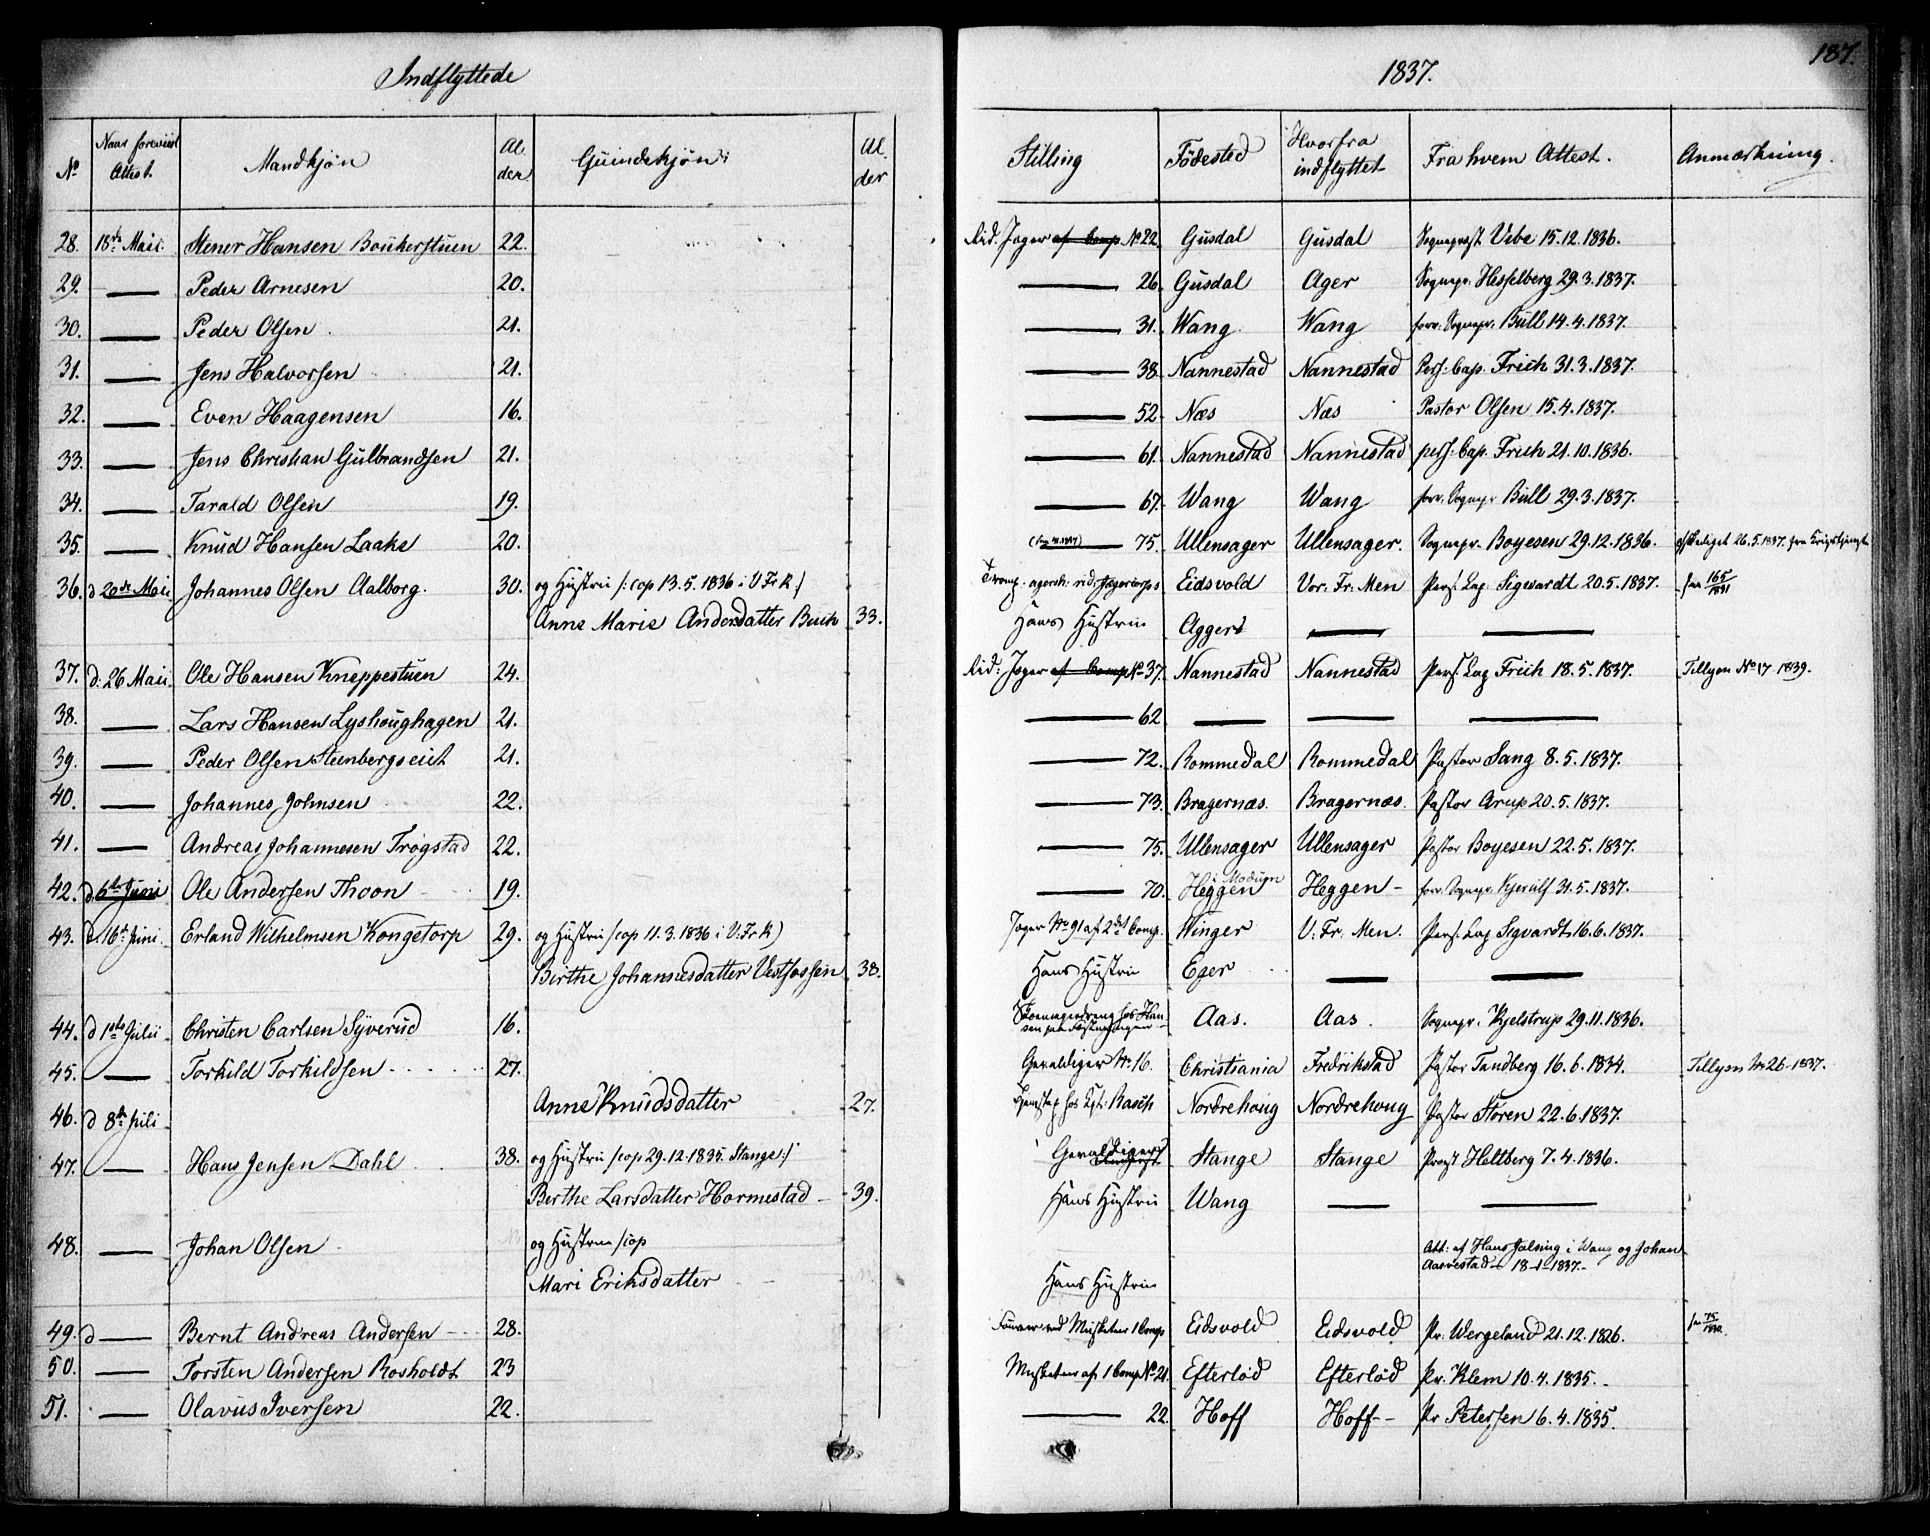 Indflyttede
1837.
187.
No
Naar foreviist Attest.
Mandkjøn
Alder
Quindekjøn
Alder
Stilling
Fødested
Hvorfra indflyttet
Fra hvem Attest.
Anmærkning.
28. 18de Maii. Stener Hansen Boukerstuen 22. Rid. Jæger af Comp. No 22. Gusdal Gusdal Sogneprest Vibe 15.12.1836.
29. — Peder Arnesen 20. — 26. Gusdal Ager Sognepr. Hesselberg 29.3.1837.
30. — Peder Olsen 21. — 31. Wang Wang forr. Sognepr. Bull 14.4.1837.
31. — Jens Halvorsen 21. — 38. Nannestad Nannestad Pers. Cap. Frich 31.3.1837.
32. — Even Haagensen 16. — 52. Næs Næs Pastor Olsen 15.4.1837.
33. — Jens Christian Gulbrandsen 21. — 61. Nannestad Nannestad pers. Cap. Frich 21.10.1836.
34. — Tarald Olsen 19. — 67. Wang Wang forr. Sognepr. Bull 29.3.1837.
35. — Knud Hansen Laake 20. — 75. Ullensager Ullensager. Sognepr. Boyesen 29.12.1836. afskediget 26.5.1837. fra Krigstjenste
36. d 20de Maii Johannes Olsen Aalborg. 30. og Hustru /: cop 13.5.1836 i V Fr K :/ Tromp. agersh. rid. Jægercorps Eidsvold Vor. Fr. Men Pers. Cap Sigvardt 20.5.1837. 165/1831
Anne Marie Andersdatter Buch 33. Hans Hustrue Agger — —
37. d. 26 Maii Ole Hansen Kneppestuen 24. Rid. Jæger af Comp No 37. Nannestad Nannestad Pers. Cap Frich 18.5.1837. Tillysn No 17 1839.
38. — Lars Hansen Lyshoughagen 21. — 62 — — —
39. — Peder Olsen Steenbergseiet 21. — 72. Rommedal Rommedal Pastor Sang 8.5.1837.
40. — Johannes Johnsen 22. — 73. Bragernæs. Bragernæs. Pastor Arup 20.5.1837.
41. — Andreas Johannesen Trøgstad 22. — 75. Ullensager Ullensager Pastor Boyesen 22.5.1837.
42. d 6te Junii Ole Andersen Thoon 19. — 70. Heggen i Modum Heggen forr. Sognepr. Kjerulf 31.5.1837.
43. d. 16de Juni Erland Wilhelmsen Kongetorp 29. og Hustru /cop 11.3.1836 i V. Fr K) Jæger No 91 af 2det Comp. Winger V. Fr. Men. Pers. Cap Sigvardt 16.6.1837.
Birthe Johannesdatter Vestfossen 38. Hans Hustrue Eger — —
44. d 1ste Julii Christen Carlsen Syverud 16. hos Hansen paa Fæstningen Aas. Aas. Sognepr. Kjelstrup 29.11.1836.
45. — Torkild Torkildsen 27. Gevaldiger No 16. Christiania Fredrikstad Pastor Tandberg 16.6.1834. Tillysn No 26 1837.
46. d 8de Juli Anne Knudsdatter 27. hos Rasch Nordrehoug Nordrehoug Pastor Støren 22.6.1837.
47. — Hans Jensen Dahl 38. og Hustru /cop 29.12.1835. Stange:/ Gevaldiger Stange Stange Provst Heltberg 7.4.1836.
Berthe Larsdatter Hormestad 39. Hans Hustrue Wang — —
48. — Johan Olsen og Hustrue /cop Att: af Hans Jalsing i Wang og Johan Aasvestad 18-1-1837.
Mari Eriksdatter Hans Hustrue
49. d — Bernt Andreas Andersen 28. ved Musketeer 1 Comp Eidsvold Eidsvold Pr. Wergeland 21.12.1826.
50. — Torsten Andersen Rosholdt 23 Musketeer af 1 Comp No 21. Efterlød Efterlød Pr. Klem 10.4.1835.
51. — Olavus Iversen 22. — 22. Hoff Hoff Pr Petersen 6.4.1835.